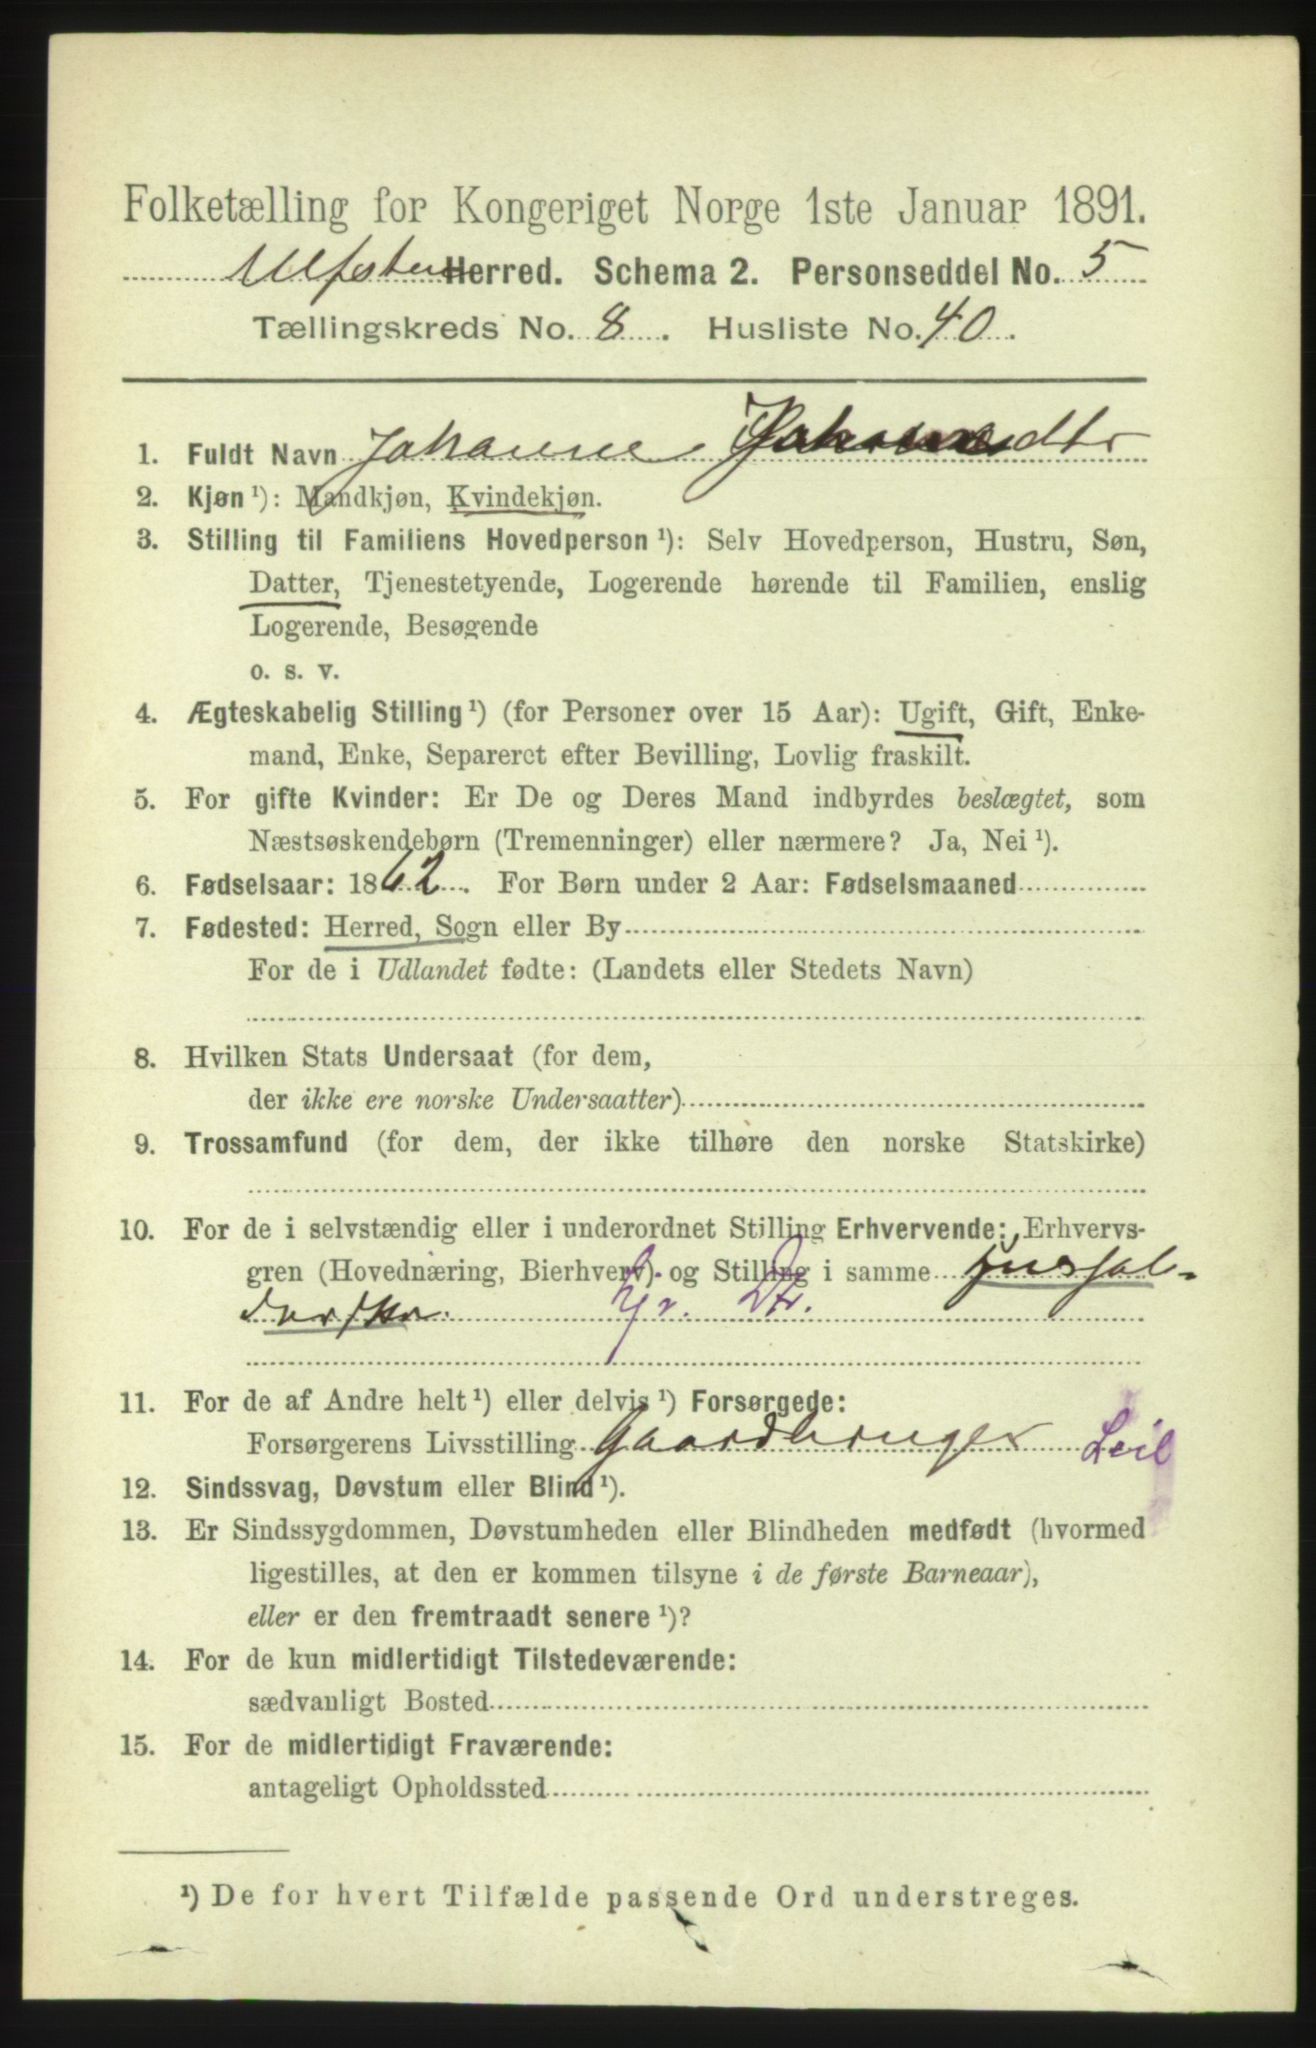 Folketælling for Kongeriget Norge 1ste Januar 1891.
Ulfsten Herred. Schema 2. Personseddel No. 5
Tællingskreds No. 8. Husliste No. 40.
1. Fuldt Navn Johanne
2. Kjøn ¹): Mandkjøn, Kvindekjøn.
3. Stilling til Familiens Hovedperson ¹): Selv Hovedperson, Hustru, Søn,
Datter, Tjenestetyende, Logerende hørende til Familien, enslig
Logerende, Besøgende
o. s. v.
4. Ægteskabelig Stilling ¹) (for Personer over 15 Aar): Ugift, Gift, Enke-
mand, Enke, Separeret efter Bevilling, Lovlig fraskilt.
5. For gifte Kvinder: Er De og Deres Mand indbyrdes beslægtet, som
Næstsøskendebørn (Tremenninger) eller nærmere? Ja, Nei ¹).
6. Fødselsaar: 1862. For Børn under 2 Aar: Fødselsmaaned
7. Fødested: Herred, Sogn eller By
For de i Udlandet fødte: (Landets eller Stedets Navn)
8. Hvilken Stats Undersaat (for dem,
der ikke ere norske Undersaatter)
9. Trossamfund (for dem, der ikke tilhøre den norske Statskirke)
10. For de i selvstændig eller i underordnet Stilling Erhvervende: Erhvervs-
gren (Hovednæring, Bierhverv) og Stilling i samme
11. For de af Andre helt ¹) eller delvis ¹) Forsørgede:
Forsørgerens Livsstilling Gaardbruger Leil
12. Sindssvag, Døvstum eller Blind ¹).
13. Er Sindssygdommen, Døvstumheden eller Blindheden medfødt (hvormed
ligestilles, at den er kommen tilsyne i de første Barneaar),
eller er den fremtraadt senere ¹)?
14. For de kun midlertidigt Tilstedeværende:
sædvanligt Bosted
15. For de midlertidigt Fraværende:
antageligt Opholdssted
¹) De for hvert Tilfælde passende Ord understreges.